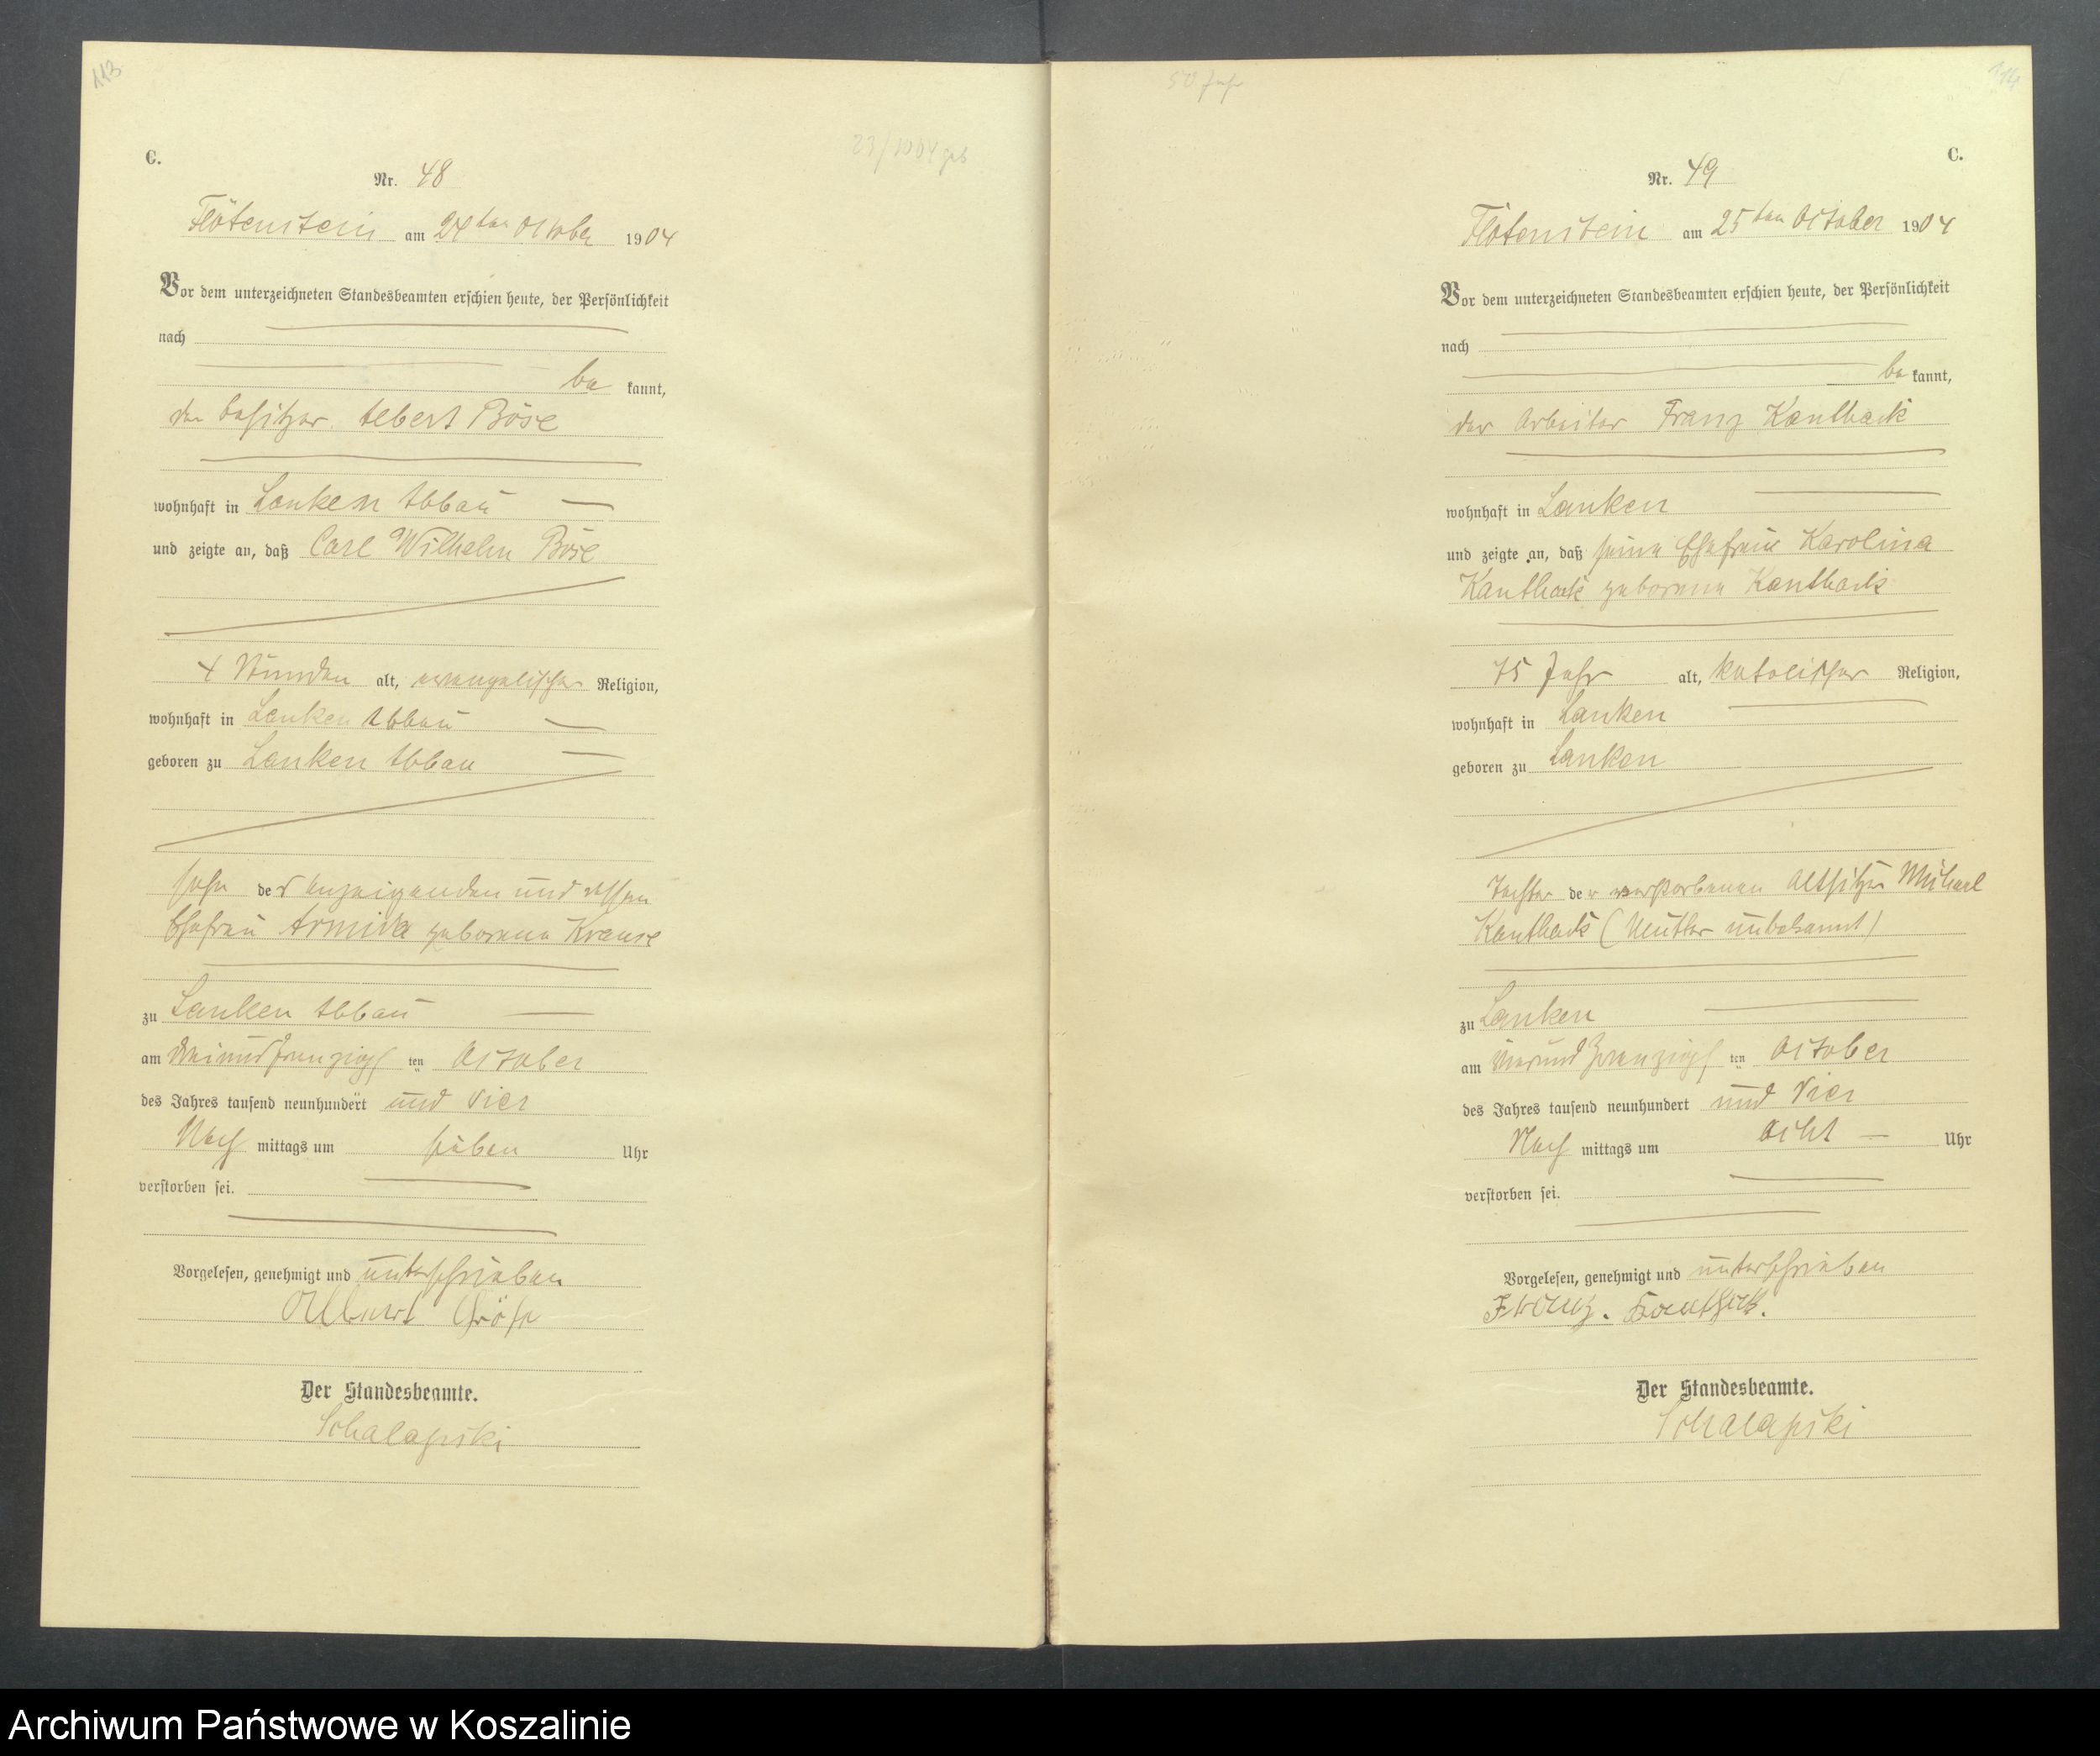 113
C.
Nr. 48
Flötenstein am 24ten October 1904
Vor dem unterzeichneten Standesbeamten erschien heute, der Persönlichkeit
nach
be kannt,
der Besitzer Albert Böse
wohnhaft in Lanken Abbau
und zeigte an, daß Carl Wilhelm Böse
4 Stunden alt, evangelischer Religion,
wohnhaft in Lanken Abbau
geboren zu Lanken Abbau
Sohn der Anzeigenden und dessen
Ehefrau Armida geborene Krause
zu Lanken Abbau
am dreiundzwanzigs ten October
des Jahres tausend neunhundert und vier
Nach mittags um sieben Uhr
verstorben sei.
Vorgelesen, genehmigt und unterschrieben
Albert Böse
Der Standesbeamte.
Schalapski
50 Jahr
114
C.
Nr. 49
Flötenstein am 25ten October 1904
Vor dem unterzeichneten Standesbeamten erschien heute, der Persönlichkeit
nach
be kannt,
der Arbeiter Franz Kanthack
wohnhaft in Lanken
und zeigte an, daß seine Ehefrau Karolina
Kanthack geborene Kanthack
75 Jahr alt, katolischer Religion,
wohnhaft in Lanken
geboren zu Lanken
Tochter der verstorbenen Altsitzer Michael
Kanthack (Mutter unbekannt)
zu Lanken
am vierundzwanzigs ten October
des Jahres tausend neunhundert und vier
Nach mittags um acht Uhr
verstorben sei.
Vorgelesen, genehmigt und unterschrieben
Franz. Kanthack.
Der Standesbeamte.
Schalapski
Archiwum Państwowe w Koszalinie